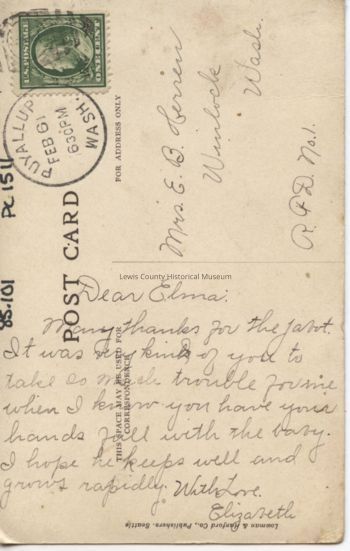 U.S. POSTAGE
ONE CENT
PUYALLUP
FEB 6
630PM
WASH.
POST CARD
FOR ADDRESS ONLY
Mrs. E. B. Herren
Winlock
Wash.
R.F.D. No. 1.
85.101
PC 1511
Lewis County Historical Museum
THIS SPACE MAY BE USED FOR
CORRESPONDENCE
Dear Elma:
Many thanks for the jabot.
It was very kind of you to
take so much trouble for me
when I know you have your
hands full with the baby.
I hope he keeps well and
grows rapidly. With Love.
Elizabeth
Lowman & Hanford Co., Publishers, Seattle